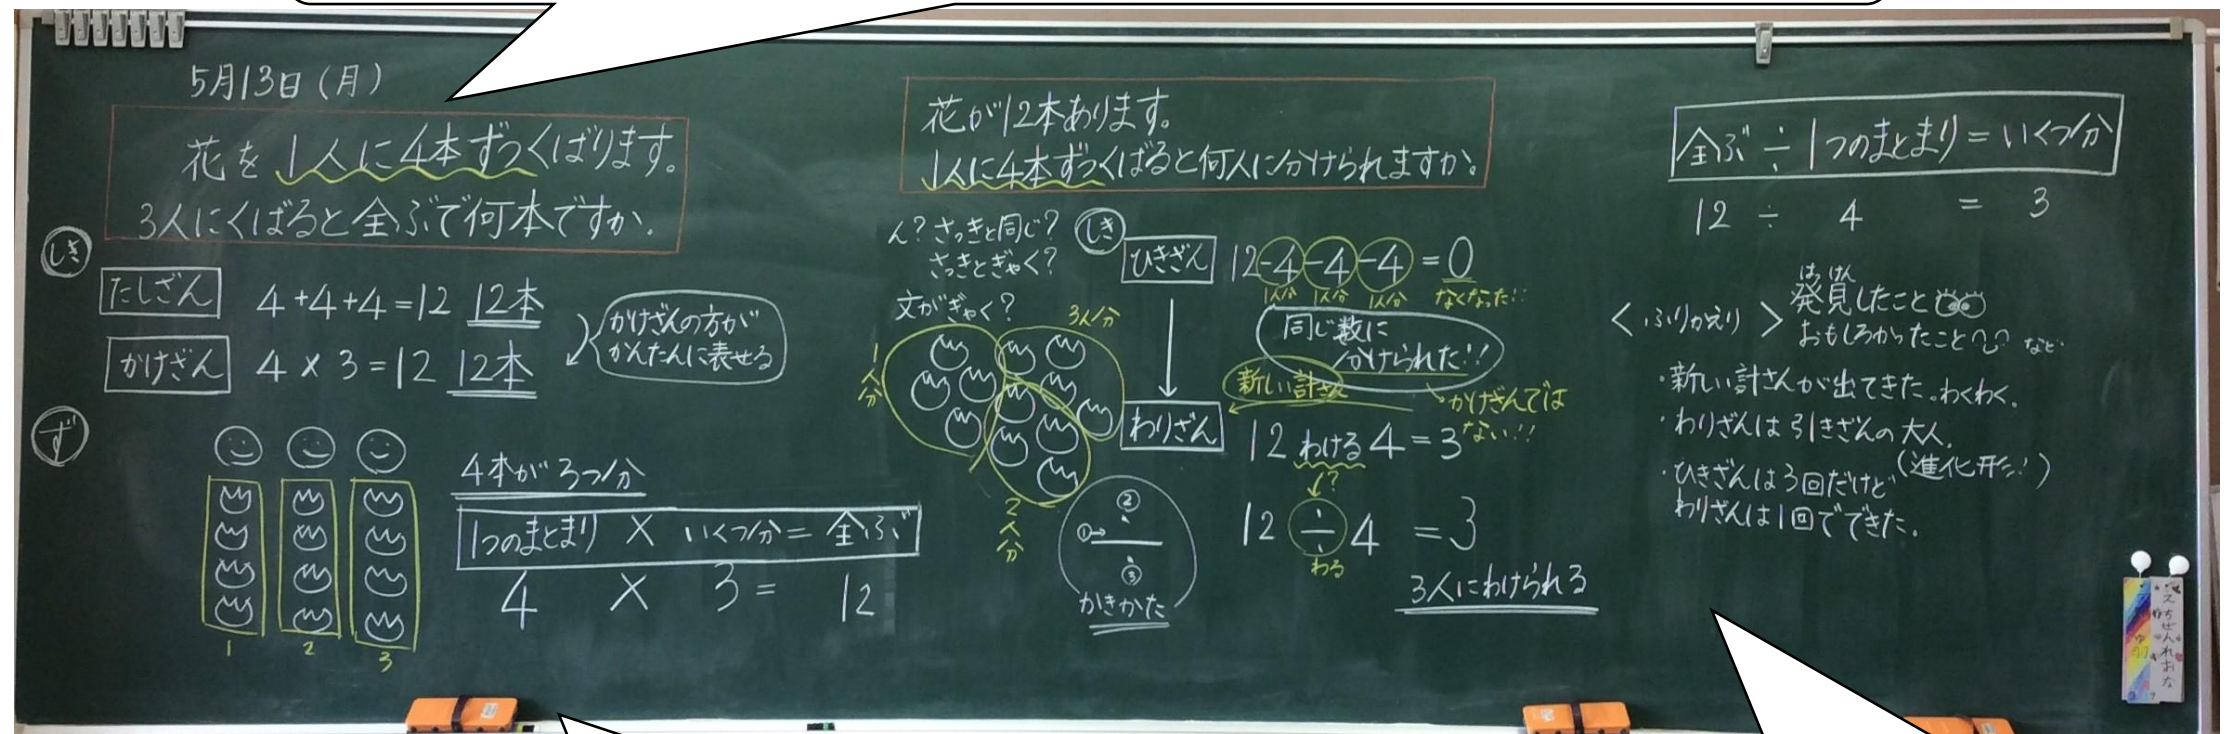 5月13日(月)
花を1人に4本ずつくばります。
3人にくばると全ぶで何本ですか。
しき
たしざん 4+4+4=12 12本
かけざん 4×3=12 12本
かけざんの方が
かんたんに表せる
ず
1 2 3
4本が3つ分
1つのまとまり × いくつ分 = 全ぶ
4 × 3 = 12
花が12本あります。
1人に4本ずつくばると何人に分けられますか。
ん?さっきと同じ?
さっきとぎゃく?
文がぎゃく?
1人分
2人分
3人分
しき
ひきざん 12-4-4-4=0
1人分 1人分 1人分 なくなった!!
同じ数に
分けられた!!
新しい計さん
かけざんでは
ない!!
わりざん 12わける4=3
?
12÷4=3
わる
3人にわけられる
①→
②
③
かきかた
全ぶ÷1つのまとまり=いくつ分
12 ÷ 4 = 3
<ふりかえり>
はっけん
発見したこと
おもしろかったこと など
・新しい計さんが出てきた。わくわく。
・わりざんは引きざんの大人。
(進化形!)
・ひきざんは3回だけど
わりざんは1回でできた。